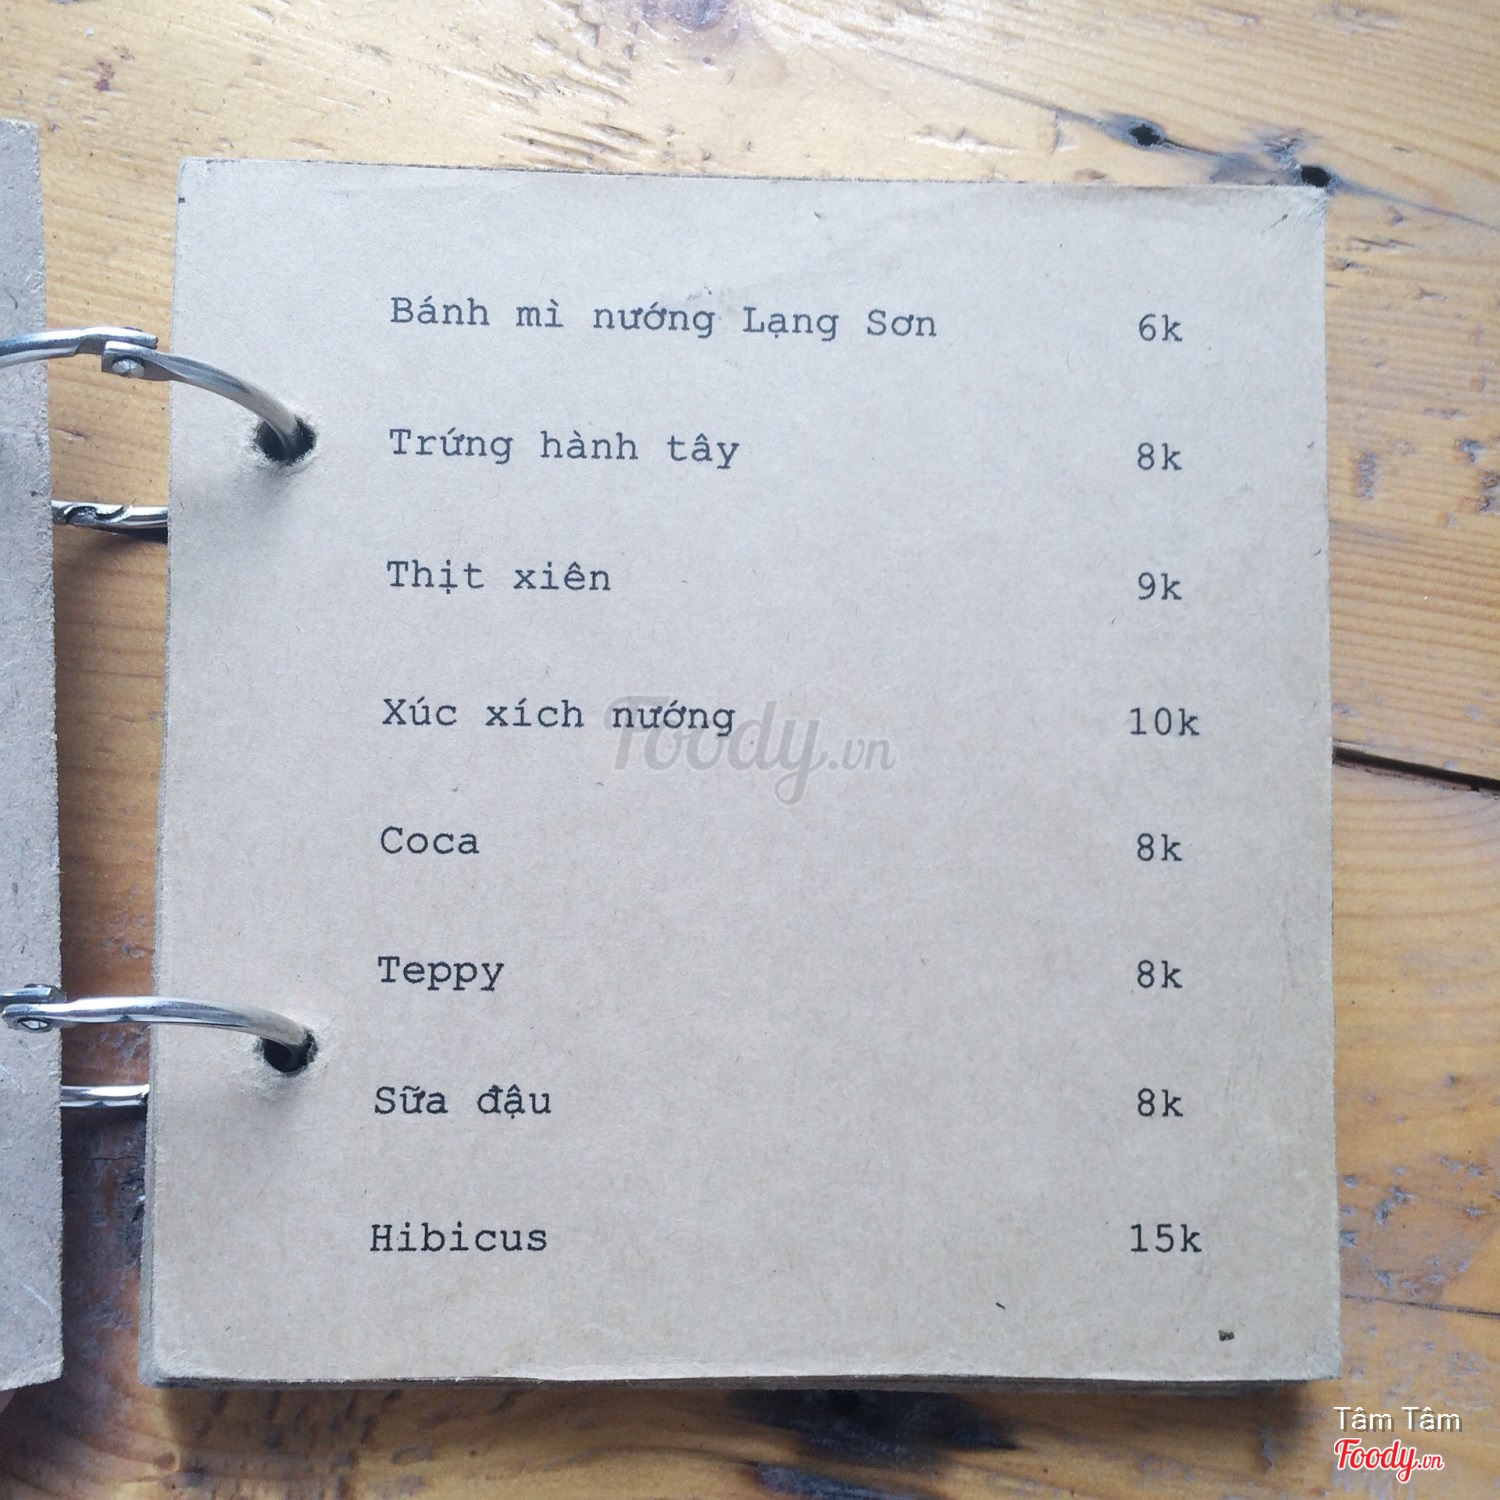 Bánh mì nướng Lạng Sơn 6k
Trứng hành tây 8k
Thịt xiên 9k
Xúc xích nướng 10k
Foody.vn
Coca 8k
Teppy 8k
Sữa đậu 8k
Hibicus 15k
Tâm Tâm
Foody.vn